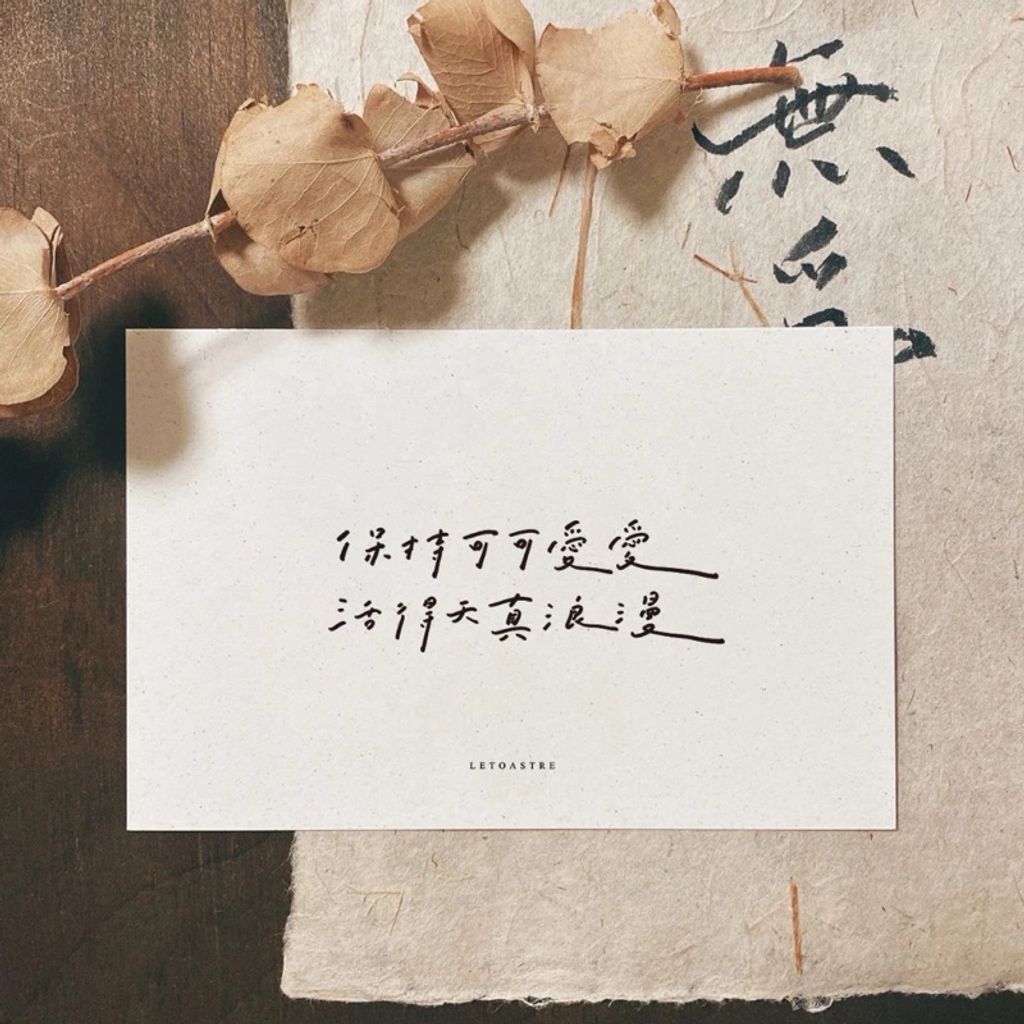 無
保持可可愛愛
活得天真浪漫
LETOASTRE